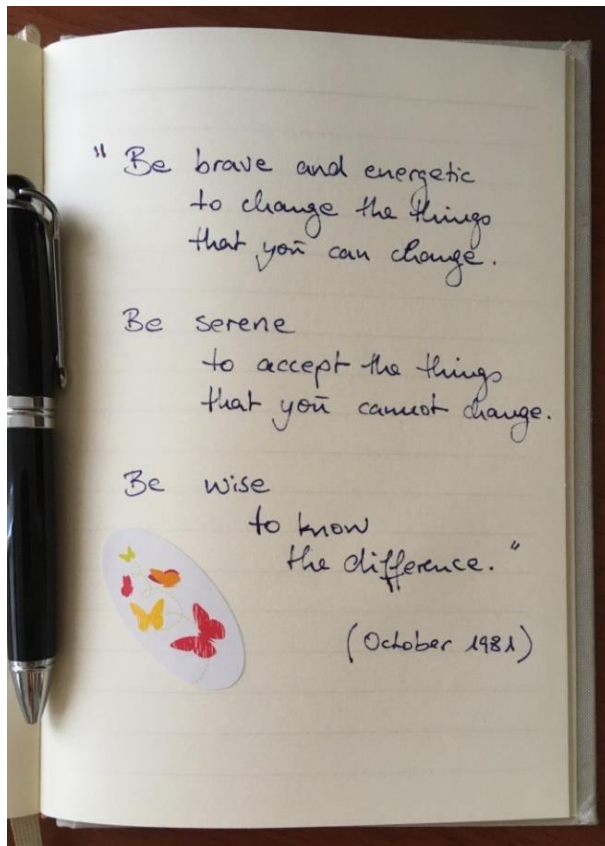 " Be brave and energetic
to change the things
that you can change.
Be serene
to accept the things
that you cannot change.
Be wise
to know
the difference. "
(October 1981)